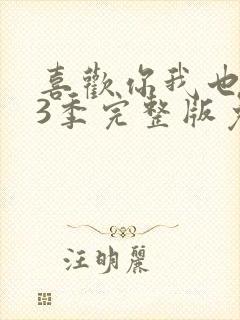 喜歡你我也
3季完整版
汪明麗